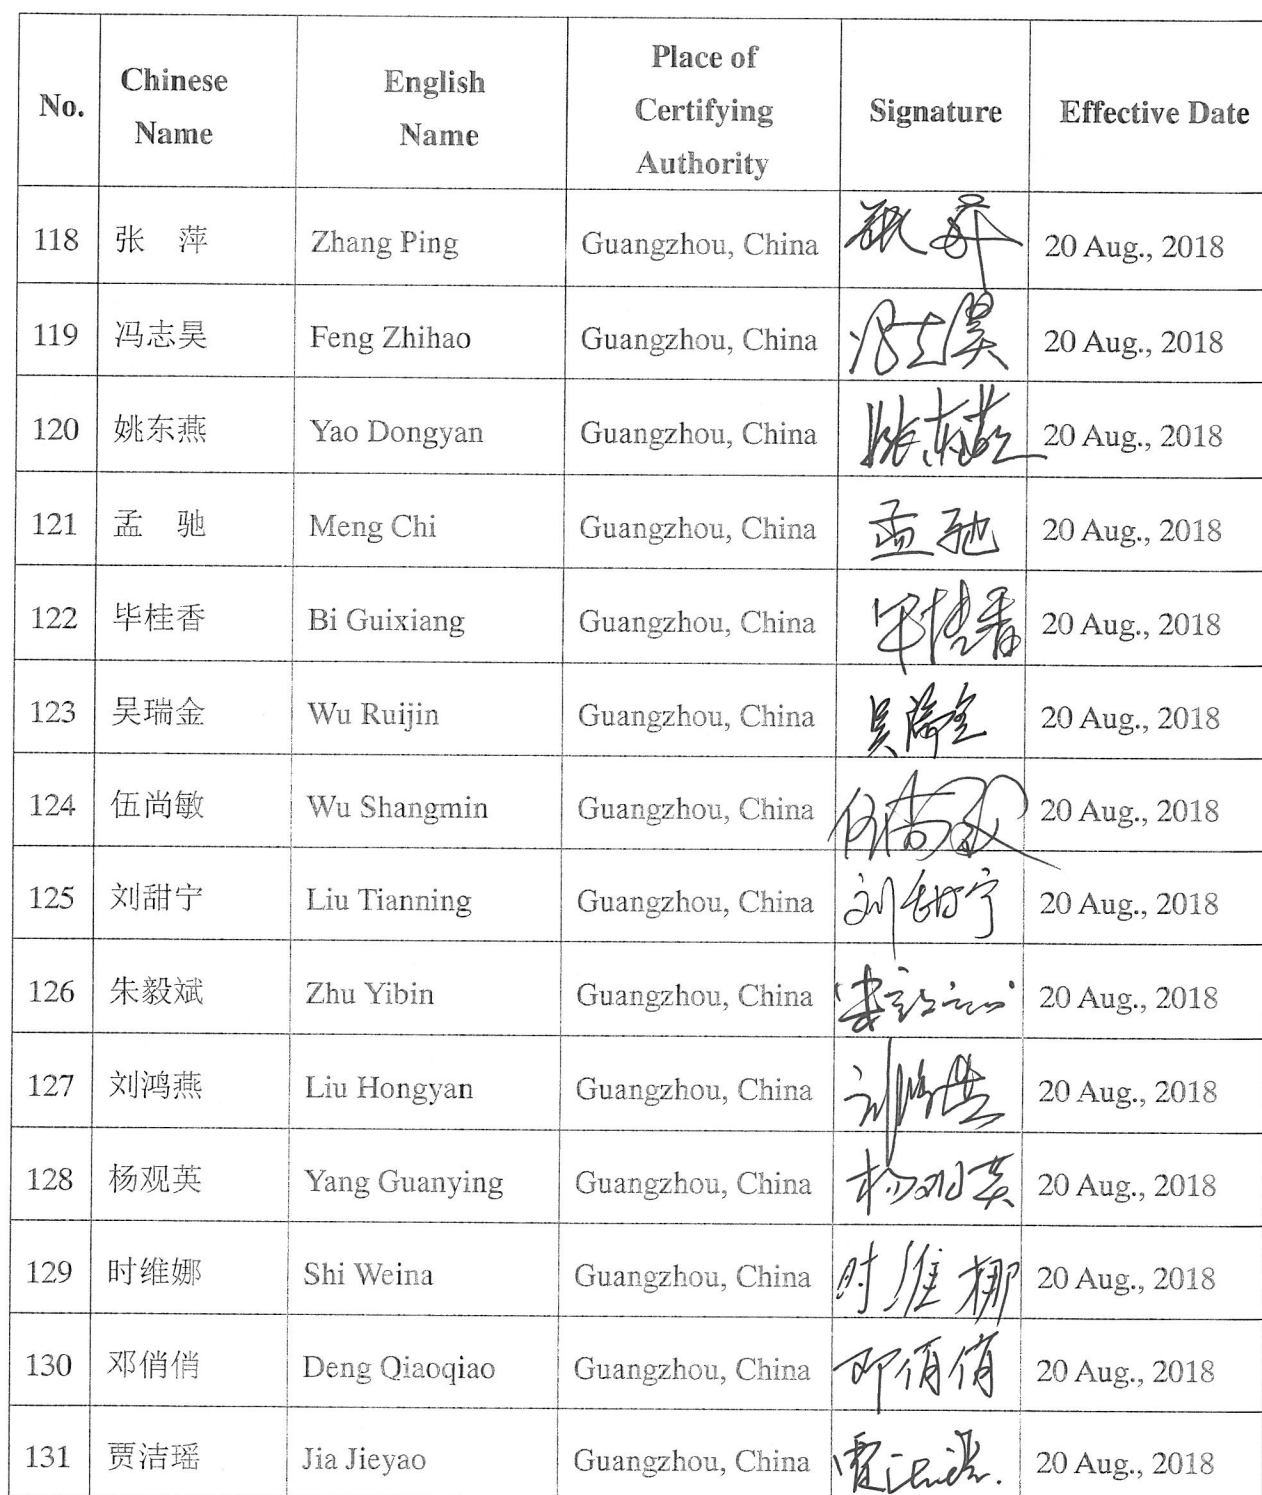 No. Chinese Name English Name Place of Certifying Authority Signature Effective Date
118 张 萍 Zhang Ping Guangzhou, China 20 Aug., 2018
119 冯志昊 Feng Zhihao Guangzhou, China 冯志昊 20 Aug., 2018
120 姚东燕 Yao Dongyan Guangzhou, China 姚东燕 20 Aug., 2018
121 孟 驰 Meng Chi Guangzhou, China 孟驰 20 Aug., 2018
122 毕桂香 Bi Guixiang Guangzhou, China 毕桂香 20 Aug., 2018
123 吴瑞金 Wu Ruijin Guangzhou, China 吴瑞金 20 Aug., 2018
124 伍尚敏 Wu Shangmin Guangzhou, China 伍尚敏 20 Aug., 2018
125 刘甜宁 Liu Tianning Guangzhou, China 刘甜宁 20 Aug., 2018
126 朱毅斌 Zhu Yibin Guangzhou, China 20 Aug., 2018
127 刘鸿燕 Liu Hongyan Guangzhou, China 刘鸿燕 20 Aug., 2018
128 杨观英 Yang Guanying Guangzhou, China 杨观英 20 Aug., 2018
129 时维娜 Shi Weina Guangzhou, China 时维娜 20 Aug., 2018
130 邓俏俏 Deng Qiaoqiao Guangzhou, China 邓俏俏 20 Aug., 2018
131 贾洁瑶 Jia Jieyao Guangzhou, China 贾洁瑶 20 Aug., 2018